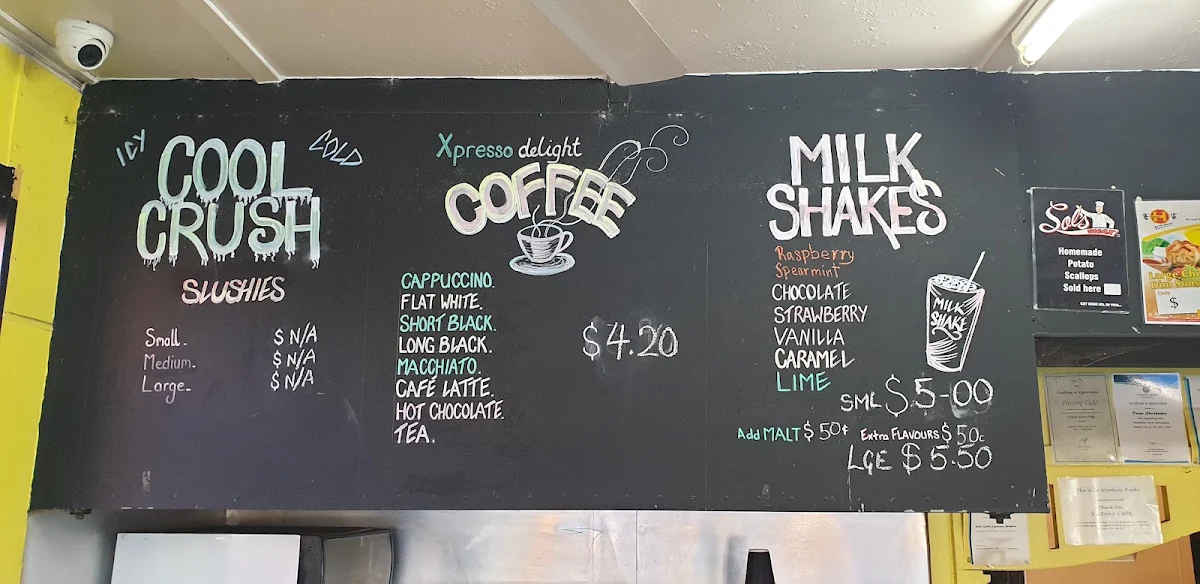 ICY
COLD
COOL
CRUSH
SLUSHIES
Small. $ N/A
Medium. $ N/A
Large. $ N/A
Xpresso delight
COFFEE
CAPPUCCINO.
FLAT WHITE.
SHORT BLACK.
LONG BLACK.
MACCHIATO.
CAFÉ LATTE.
HOT CHOCOLATE.
TEA.
$4.20
MILK
SHAKES
Raspberry
Spearmint
CHOCOLATE
STRAWBERRY
VANILLA
CARAMEL
LIME
MILK
SHAKE
SML $5-00
Add MALT $ 50¢ Extra FLAVOURS $ 50c
LGE $5.50
Sol's
Homemade
Potato
Scallops
Sold here
Only
$
Certificate of Appreciation
Victory Cafe
Certificate of Appreciation
Thank You
Victory Cafe